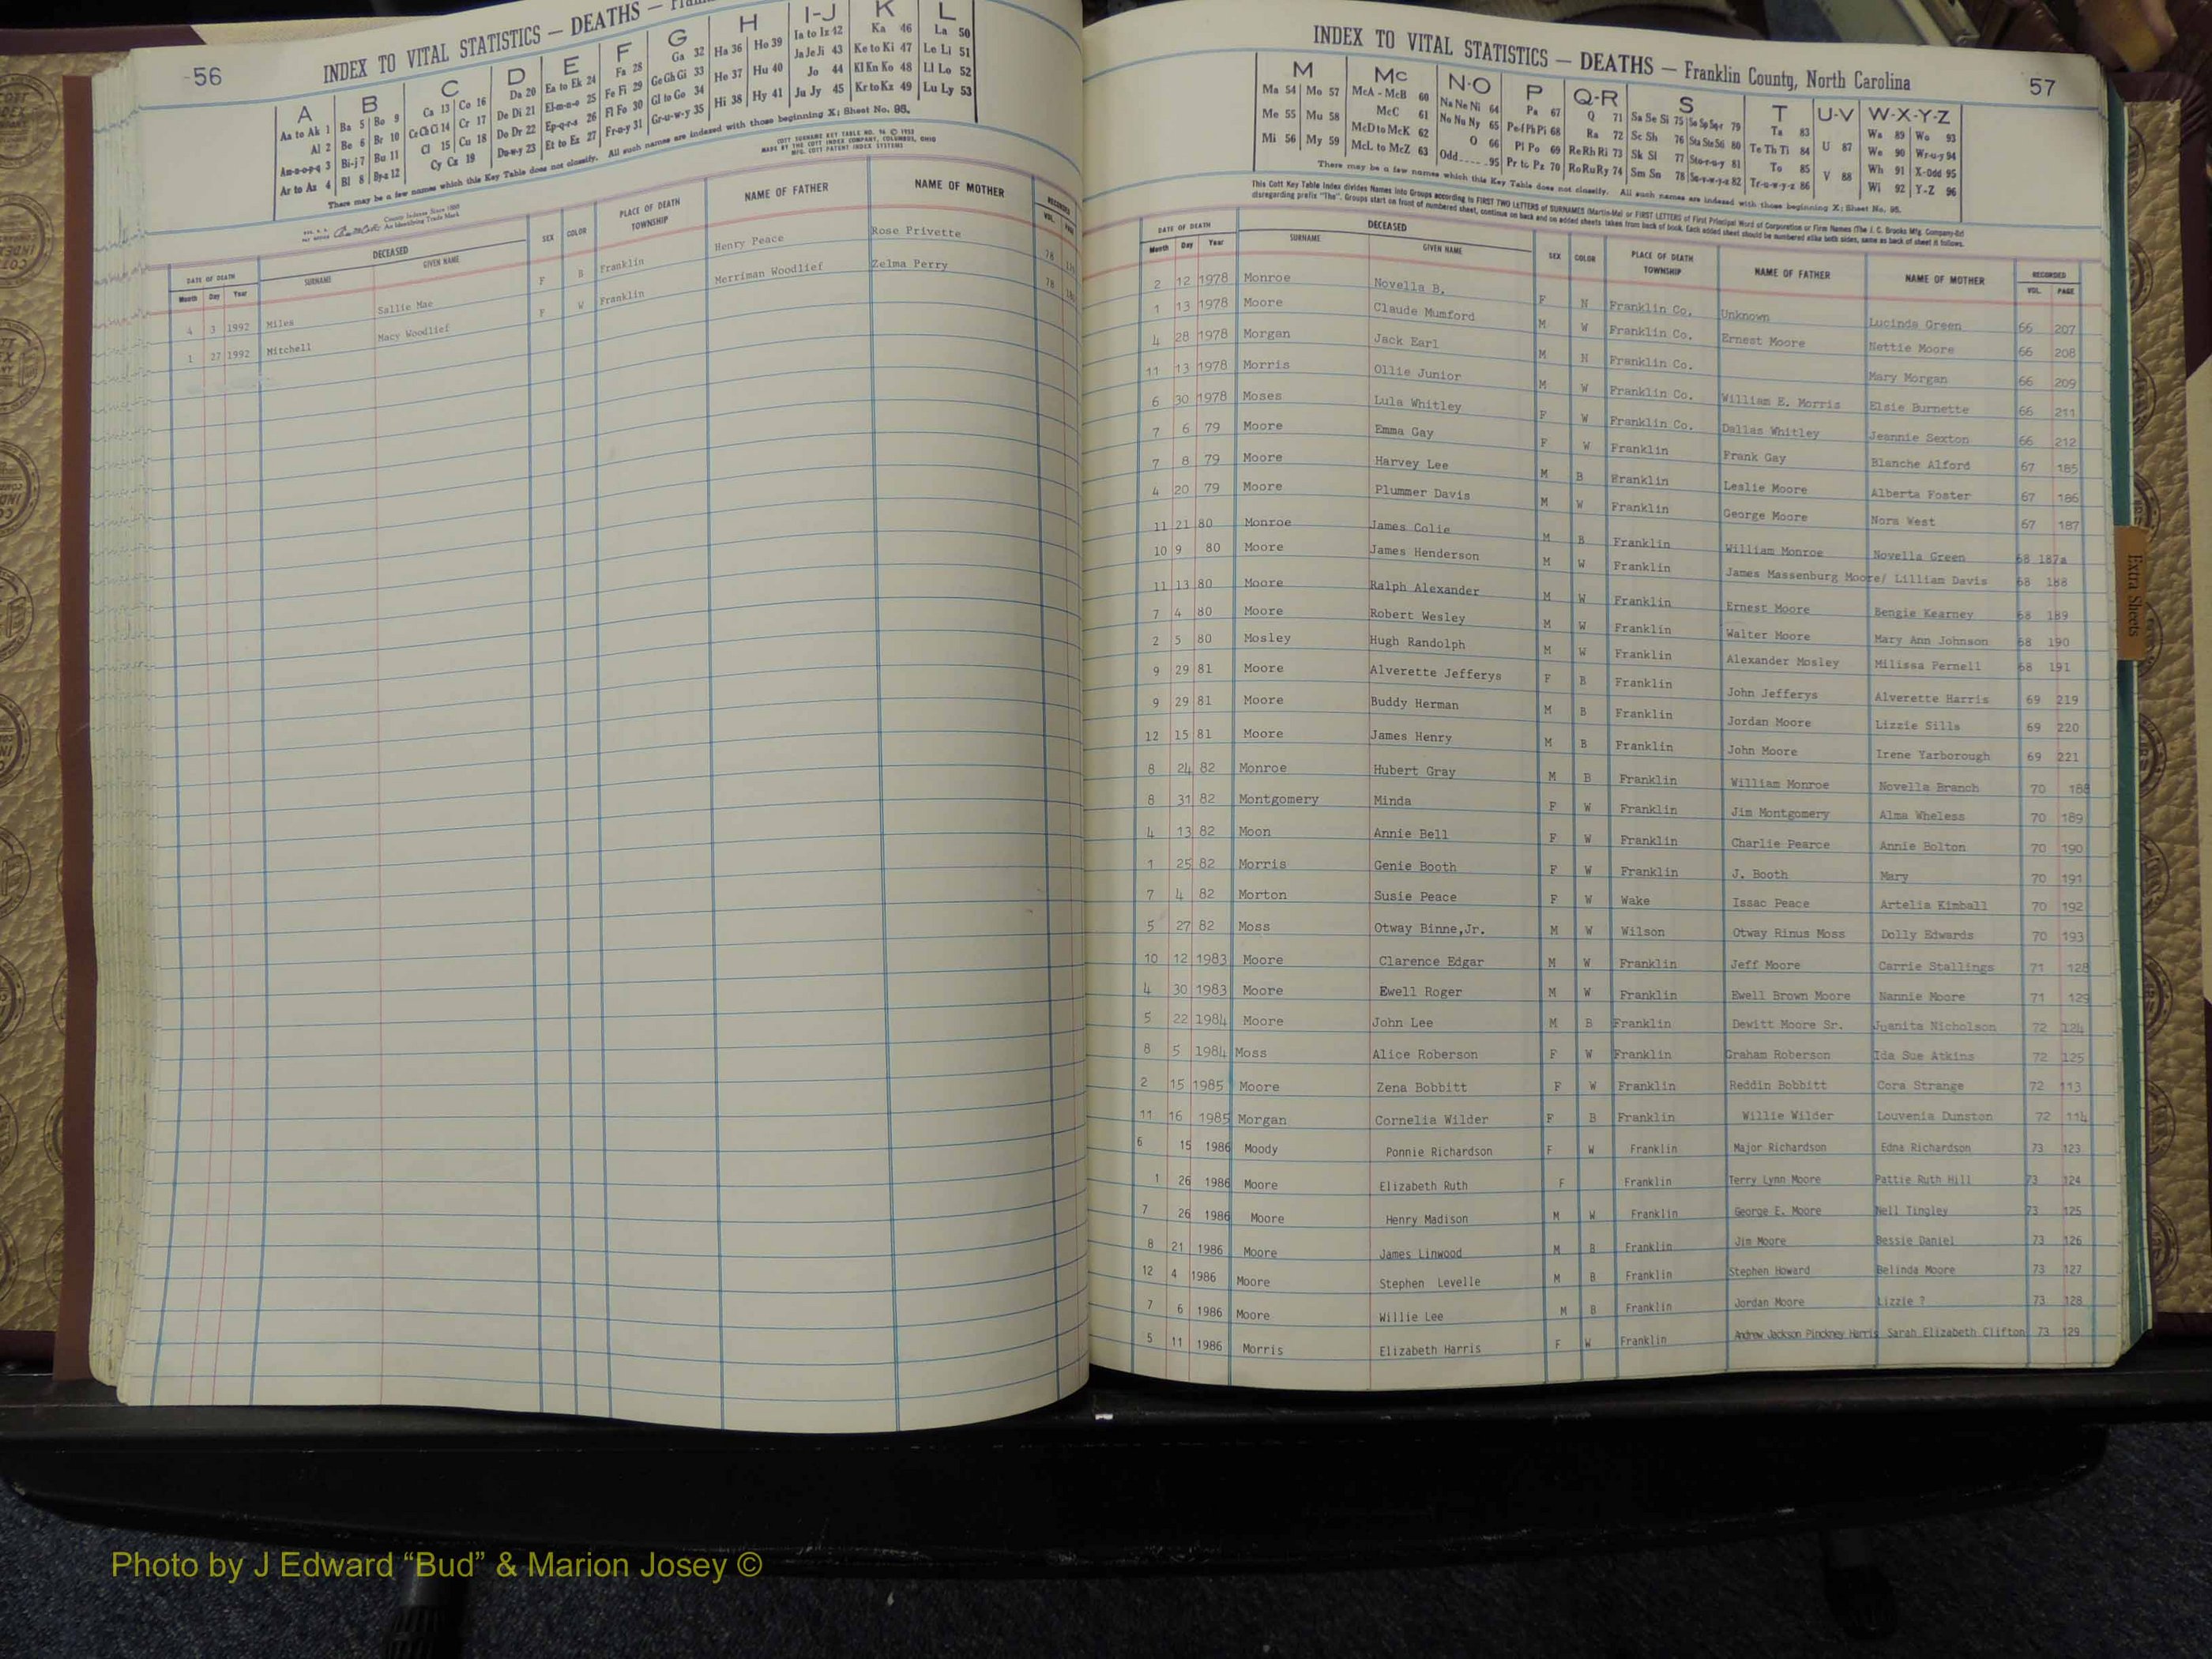 56
INDEX TO VITAL STATISTICS — DEATHS —
A B C D E F G H I-J K L
Aa to Ak 1 Ba 5 Bo 9 Ca 13 Co 16 Da 20 Ea to Ek 24 Fa 28 Ga 32 Ha 36 Ho 39 Ia to Iz 42 Ka 46 La 50
Al 2 Be 6 Br 10 Ce Ch Ci 14 Cr 17 De Di 21 El-m-n-o 25 Fe Fi 29 Ge Gh Gi 33 He 37 Hu 40 Ja Je Ji 43 Ke to Ki 47 Le Li 51
Am-n-o-p-q 3 Bi-j 7 Bu 11 Cl 15 Cu 18 Do Dr 22 Ep-q-r-s 26 Fl Fo 30 Gl to Go 34 Hi 38 Hy 41 Jo 44 Kl Kn Ko 48 Ll Lo 52
Ar to Az 4 Bl 8 By-z 12 Cy Cz 19 Du-w-y 23 Et to Ez 27 Fr-u-y 31 Gr-u-w-y 35 Ju Jy 45 Kr to Kz 49 Lu Ly 53
There may be a few names which this Key Table does not classify. All such names are indexed with those beginning X; Sheet No. 95.
COTT SURNAME KEY TABLE NO. 96 © 1952
MADE BY THE COTT INDEX COMPANY, COLUMBUS, OHIO
MFG. COTT PATENT INDEX SYSTEMS
County Indexes Since 1888
An Identifying Trade Mark
DATE OF DEATH DECEASED SEX COLOR PLACE OF DEATH TOWNSHIP NAME OF FATHER NAME OF MOTHER RECORDED
Month Day Year SURNAME GIVEN NAME VOL. PAGE
4 3 1992 Miles Sallie Mae F B Franklin Henry Peace Rose Privette 78
1 27 1992 Mitchell Macy Woodlief F W Franklin Merriman Woodlief Zelma Perry 78
INDEX TO VITAL STATISTICS — DEATHS — Franklin County, North Carolina
57
M Mc N-O P Q-R S T U-V W-X-Y-Z
Ma 54 Mo 57 McA - McB 60 Na Ne Ni 64 Pa 67 Q 71 Sa Se Si 75 So Sp Sq-r 79 Ta 83 U 87 Wa 89 Wo 93
Me 55 Mu 58 McC 61 No Nu Ny 65 Pe-f Ph Pi 68 Ra 72 Sc Sh 76 Sta Ste Sti 80 Te Th Ti 84 V 88 We 90 Wr-u-y 94
Mi 56 My 59 McD to McK 62 O 66 Pl Po 69 Re Rh Ri 73 Sk Sl 77 Sto-r-u-y 81 To 85 Wh 91 X-Odd 95
McL to McZ 63 Odd 95 Pr to Pz 70 Ro Ru Ry 74 Sm Sn 78 Su-v-w-y-z 82 Tr-u-w-y-z 86 Wi 92 Y-Z 96
There may be a few names which this Key Table does not classify. All such names are indexed with those beginning X; Sheet No. 95.
This Cott Key Table Index divides Names into Groups according to FIRST TWO LETTERS of SURNAMES (Martin-Ma) or FIRST LETTERS of First Principal Word of Corporation or Firm Names (The J. C. Brooks Mfg. Company-Br)
disregarding prefix "The". Groups start on front of numbered sheet, continue on back and on added sheets taken from back of book. Each added sheet should be numbered alike both sides, same as back of sheet it follows.
DATE OF DEATH DECEASED SEX COLOR PLACE OF DEATH TOWNSHIP NAME OF FATHER NAME OF MOTHER RECORDED
Month Day Year SURNAME GIVEN NAME VOL. PAGE
2 12 1978 Monroe Novella B. F N Franklin Co. Unknown Lucinda Green 66 207
1 13 1978 Moore Claude Mumford M W Franklin Co. Ernest Moore Nettie Moore 66 208
4 28 1978 Morgan Jack Earl M N Franklin Co. Mary Morgan 66 209
11 13 1978 Morris Ollie Junior M W Franklin Co. William E. Morris Elsie Burnette 66 211
6 30 1978 Moses Lula Whitley F W Franklin Co. Dallas Whitley Jeannie Sexton 66 212
7 6 79 Moore Emma Gay F W Franklin Frank Gay Blanche Alford 67 185
7 8 79 Moore Harvey Lee M B Franklin Leslie Moore Alberta Foster 67 186
4 20 79 Moore Plummer Davis M W Franklin George Moore Nora West 67 187
11 21 80 Monroe James Colie M B Franklin William Monroe Novella Green 68 187a
10 9 80 Moore James Henderson M W Franklin James Massenburg Moore/ Lilliam Davis 68 188
11 13 80 Moore Ralph Alexander M W Franklin Ernest Moore Bengie Kearney 68 189
7 4 80 Moore Robert Wesley M W Franklin Walter Moore Mary Ann Johnson 68 190
2 5 80 Mosley Hugh Randolph M W Franklin Alexander Mosley Milissa Pernell 68 191
9 29 81 Moore Alverette Jefferys F B Franklin John Jefferys Alverette Harris 69 219
9 29 81 Moore Buddy Herman M B Franklin Jordan Moore Lizzie Sills 69 220
12 15 81 Moore James Henry M B Franklin John Moore Irene Yarborough 69 221
8 24 82 Monroe Hubert Gray M B Franklin William Monroe Novella Branch 70 188
8 31 82 Montgomery Minda F W Franklin Jim Montgomery Alma Wheless 70 189
4 13 82 Moon Annie Bell F W Franklin Charlie Pearce Annie Bolton 70 190
1 25 82 Morris Genie Booth F W Franklin J. Booth Mary 70 191
7 4 82 Morton Susie Peace F W Wake Issac Peace Artelia Kimball 70 192
5 27 82 Moss Otway Binne,Jr. M W Wilson Otway Rinus Moss Dolly Edwards 70 193
10 12 1983 Moore Clarence Edgar M W Franklin Jeff Moore Carrie Stallings 71 128
4 30 1983 Moore Ewell Roger M W Franklin Ewell Brown Moore Nannie Moore 71 129
5 22 1984 Moore John Lee M B Franklin Dewitt Moore Sr. Juanita Nicholson 72 124
8 5 1984 Moss Alice Roberson F W Franklin Graham Roberson Ida Sue Atkins 72 125
2 15 1985 Moore Zena Bobbitt F W Franklin Reddin Bobbitt Cora Strange 72 113
11 16 1985 Morgan Cornelia Wilder F B Franklin Willie Wilder Louvenia Dunston 72 114
6 15 1986 Moody Ponnie Richardson F W Franklin Major Richardson Edna Richardson 73 123
1 26 1986 Moore Elizabeth Ruth F Franklin Terry Lynn Moore Pattie Ruth Hill 73 124
7 26 1986 Moore Henry Madison M W Franklin George E. Moore Nell Tingley 73 125
8 21 1986 Moore James Linwood M B Franklin Jim Moore Bessie Daniel 73 126
12 4 1986 Moore Stephen Levelle M B Franklin Stephen Howard Belinda Moore 73 127
7 6 1986 Moore Willie Lee M B Franklin Jordan Moore Lizzie ? 73 128
5 11 1986 Morris Elizabeth Harris F W Franklin Andrew Jackson Pinckney Harris Sarah Elizabeth Clifton 73 129
Extra Sheets
Photo by J Edward “Bud” & Marion Josey ©